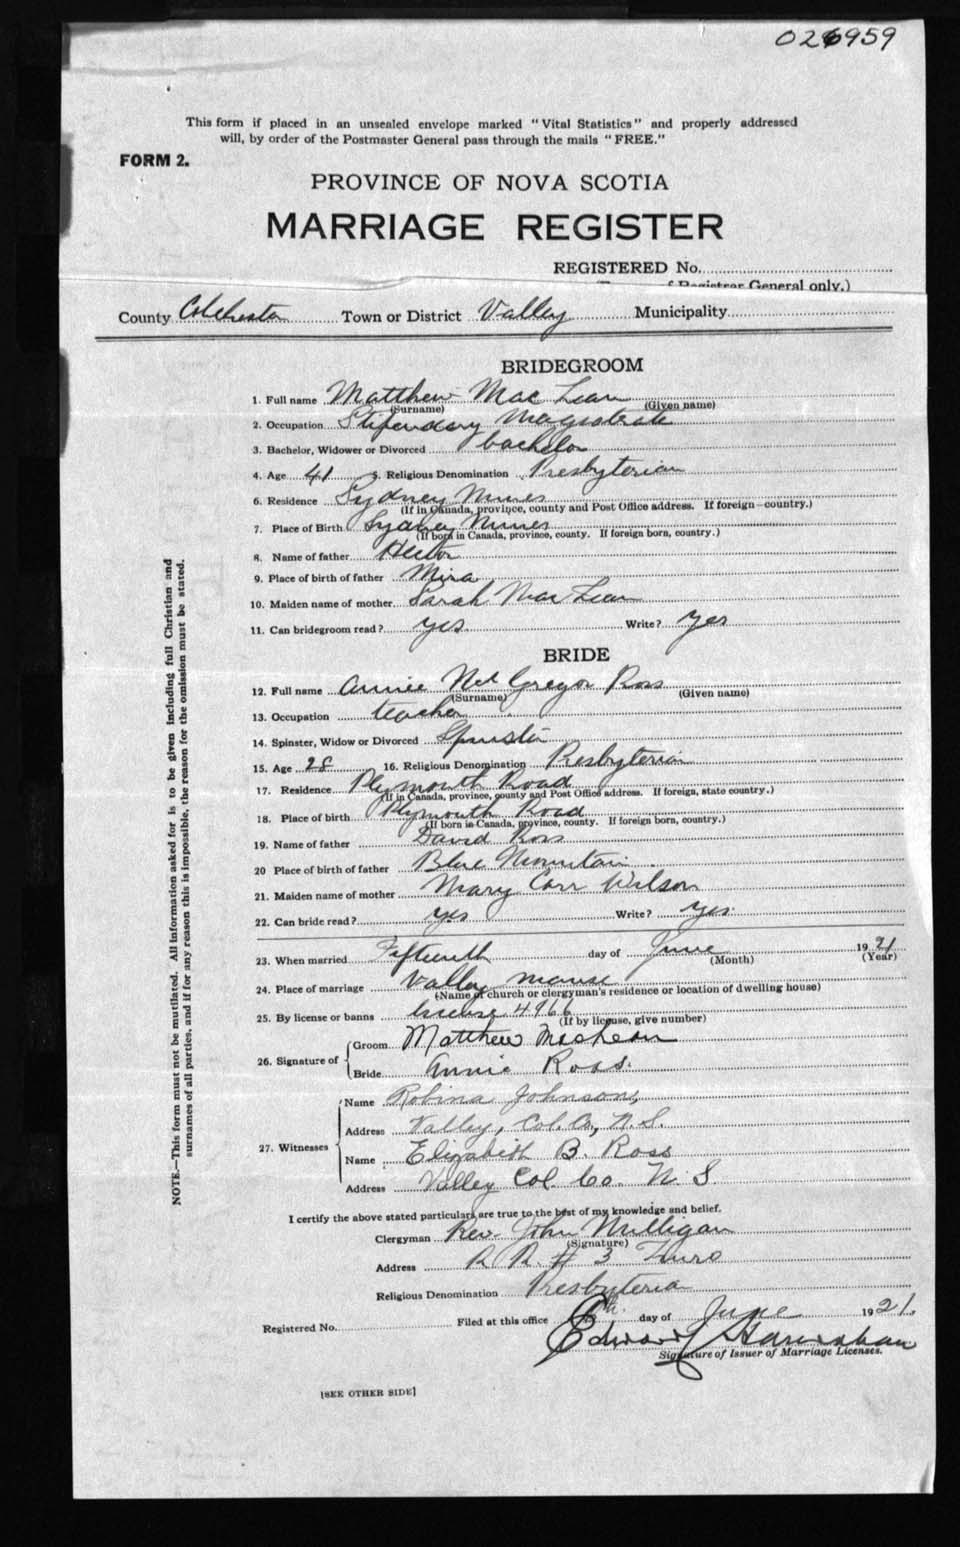 026959
This form if placed in an unsealed envelope marked "Vital Statistics" and properly addressed
will, by order of the Postmaster General pass through the mails "FREE."
FORM 2.
PROVINCE OF NOVA SCOTIA
MARRIAGE REGISTER
REGISTERED No.
f Registrar General only.)
County Colchester Town or District Valley Municipality
BRIDEGROOM
1. Full name Matthew Mac Lean
(Surname) (Given name)
2. Occupation Stipendary Magistrate
3. Bachelor, Widower or Divorced bachelor
4. Age 41 5. Religious Denomination Presbyterian
6. Residence Sydney Mines
(If in Canada, province, county and Post Office address. If foreign—country.)
7. Place of Birth Sydney Mines
(If born in Canada, province, county. If foreign born, country.)
8. Name of father Hector
9. Place of birth of father Mira
10. Maiden name of mother Sarah Mac Lean
11. Can bridegroom read? yes Write? yes
BRIDE
12. Full name Annie Gregor Ross
(Surname) (Given name)
13. Occupation teacher
14. Spinster, Widow or Divorced Spinster
15. Age 28 16. Religious Denomination Presbyterian
17. Residence Plymouth Road
(If in Canada, province, county and Post Office address. If foreign, state country.)
18. Place of birth Plymouth Road
(If born in Canada, province, county. If foreign born, country.)
19. Name of father David Ross
20 Place of birth of father Blue Mountain
21. Maiden name of mother Mary Carr Wilson
22. Can bride read? yes Write? yes
23. When married Fifteenth day of June 1921
(Month) (Year)
24. Place of marriage Valley manse
(Name of church or clergyman's residence or location of dwelling house)
25. By license or banns license 4966
(If by license, give number)
26. Signature of
Groom Matthew MacLean
Bride Annie Ross.
27. Witnesses
Name Robina Johnson,
Address Valley, Col. Co, N.S.
Name Elizabeth B. Ross
Address Valley Col. Co. N. S
I certify the above stated particulars are true to the best of my knowledge and belief.
Clergyman Rev. John Milligan
(Signature)
Address R R # 3 Truro
Religious Denomination Presbyteria
Registered No. Filed at this office day of June 1921.
Edward
Signature of Issuer of Marriage Licenses.
[SEE OTHER SIDE]
NOTE.—This form must not be mutilated. All information asked for is to be given including full Christian and
surnames of all parties, and if for any reason this is impossible, the reason for the omission must be stated.